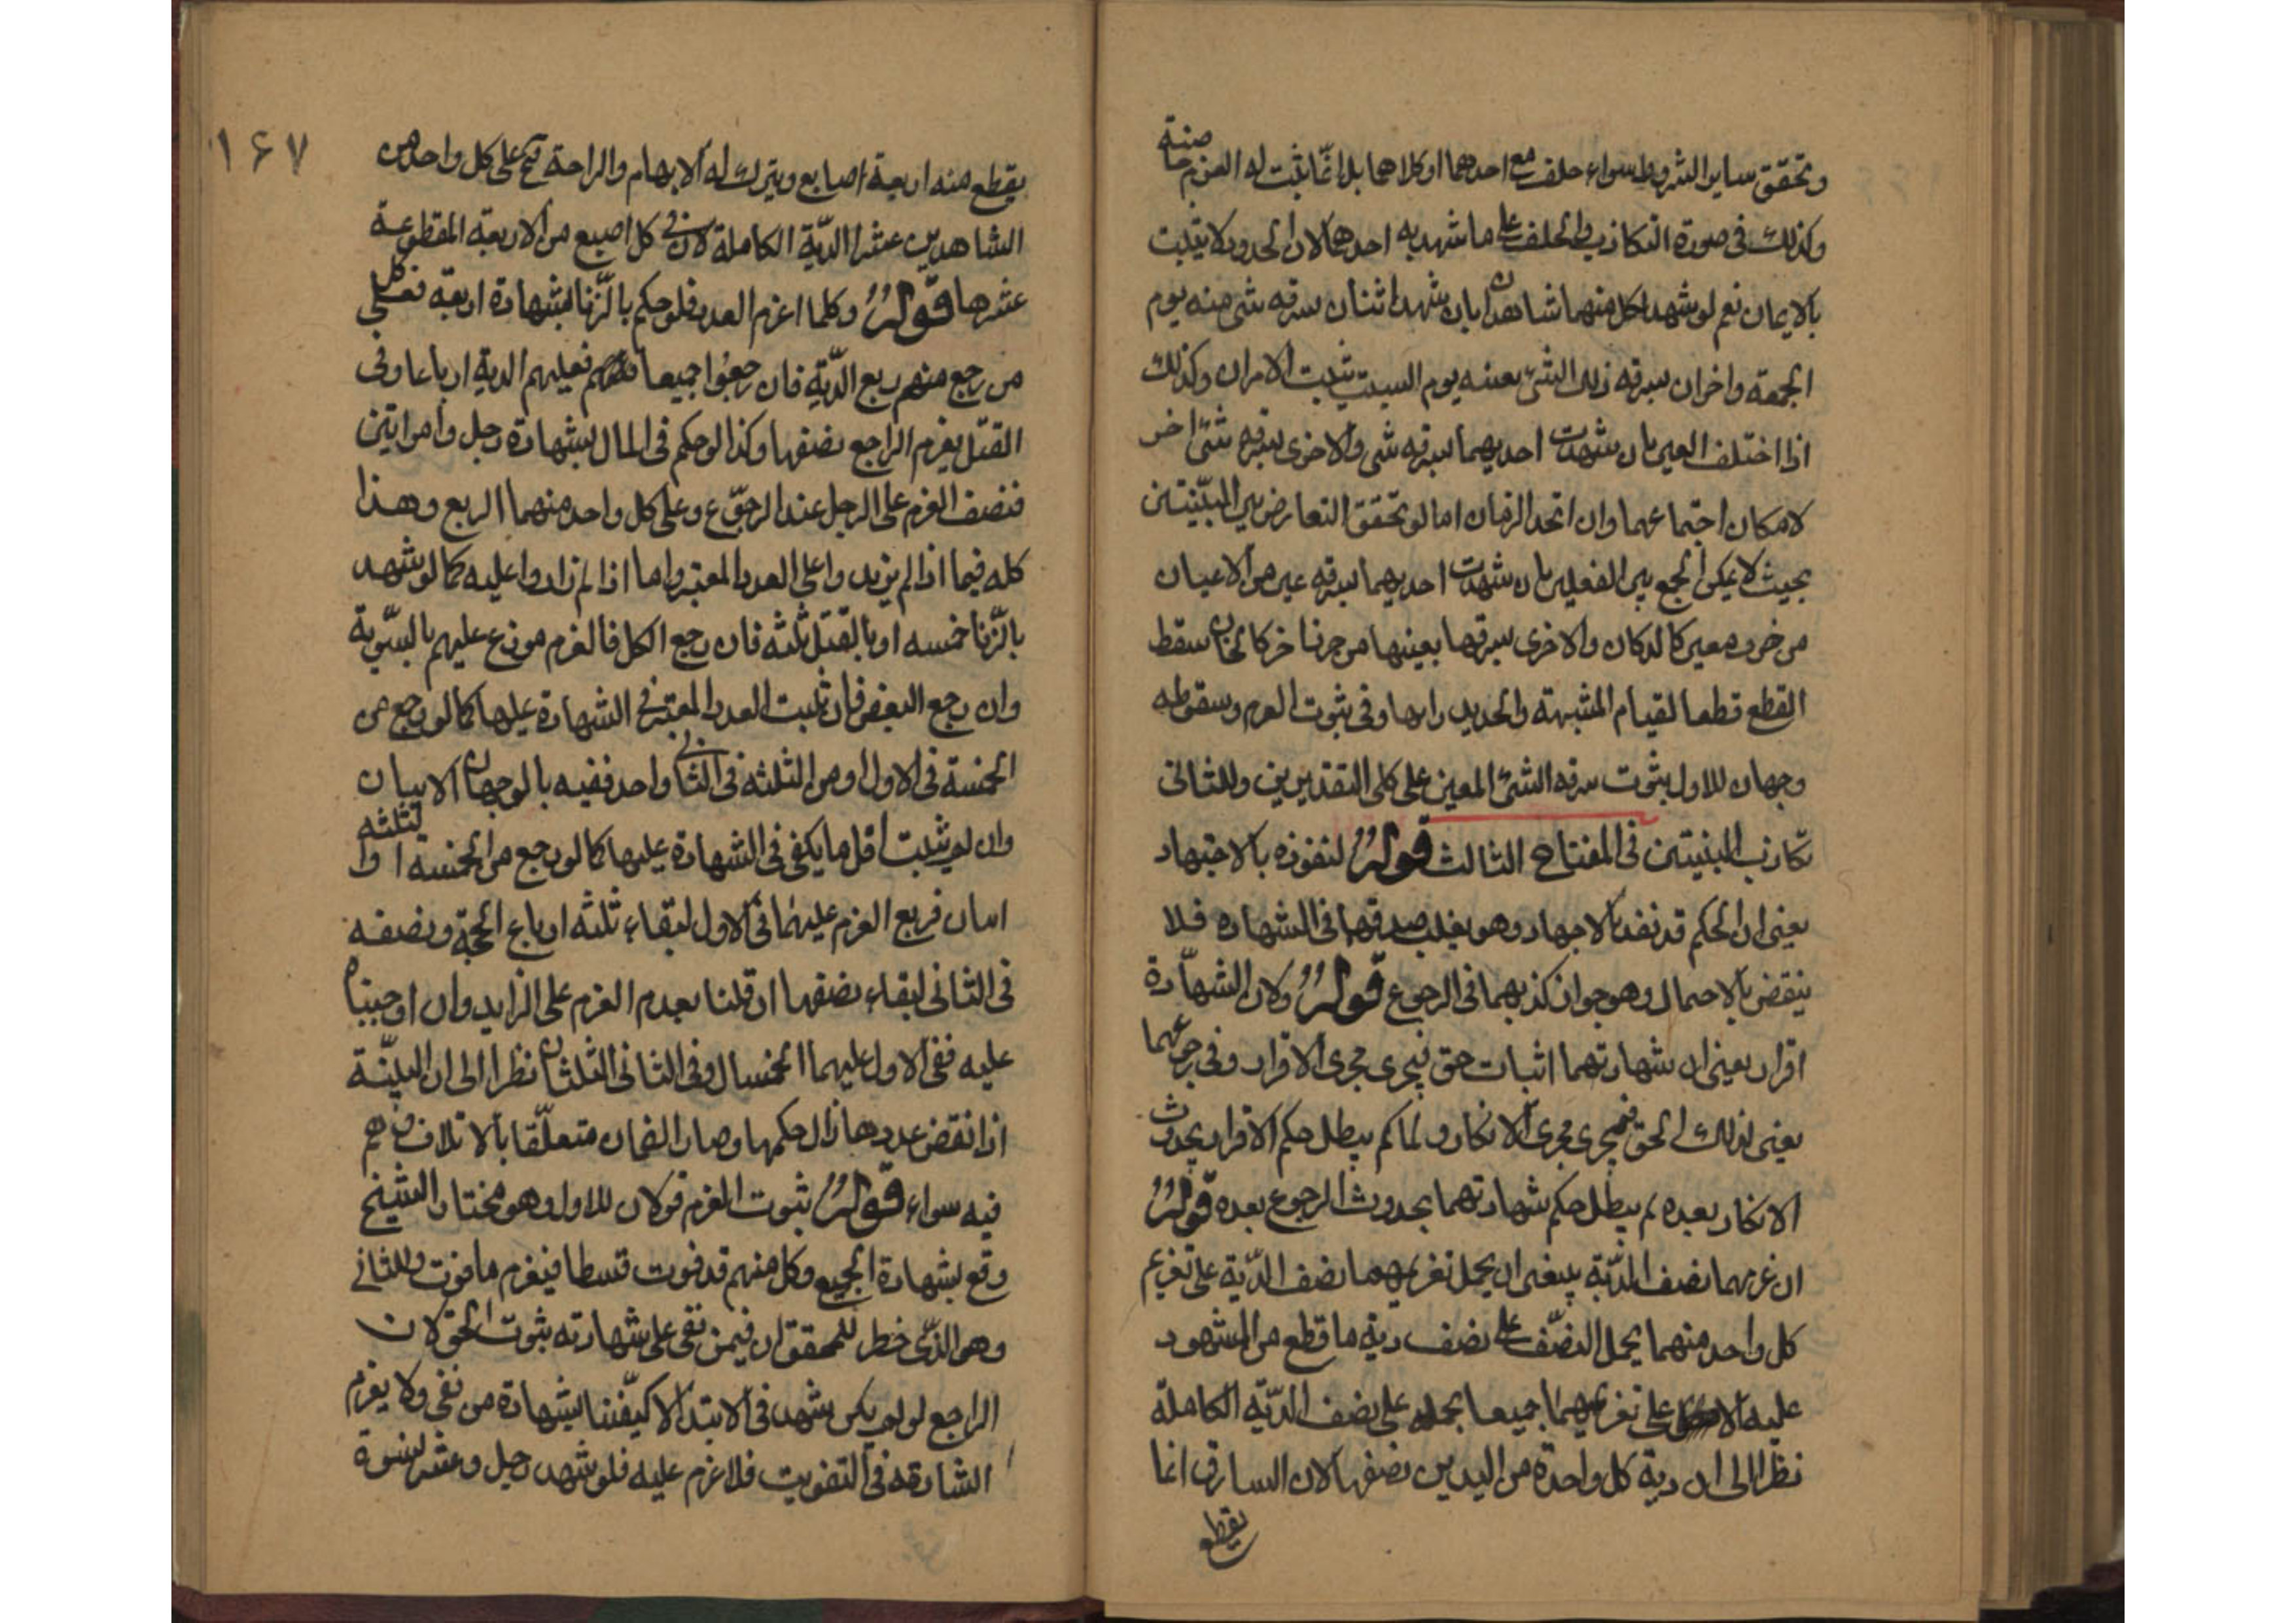 وتحقق ساير الشروط سواء حلف مع احدهما او كلاهما بل انما يثبت له الغرم خاصة
وكذلك فى صورة التكاذب والحلف على ما شهد به احدهما لان الحدود لا يثبت
بالايمان نعم لو شهد لكل منهما شاهدان بان شهد اثنان بسرقه شى منه يوم
الجمعة واخران بسرقه ذلك الشئ بعينه يوم السبت يثبت الامران وكذلك
اذا اختلف العين بان شهدت احديهما بسرقه شى والاخرى بسرقه شئ اخر
لامكان اجتماعهما وان اتحد الزمان اما لو تحقق التعارض بين البينتين
بحيث لا يمكن الجمع بين الفعلين بان شهدت احديهما بسرقه عين من الاعيان
من حرز معين كالدكان والاخرى بسرقها بعينها من حرز اخر كالخان سقط
القطع قطعا لقيام الشبهة والحد يدرا بها وفى ثبوت الغرم وسقوطه
وجهان للاول ثبوت سرقه الشئ المعين على كلى التقديرين وللثانى
تكاذب البينتين فى المفتاح الثالث قوله لنفوذه بالاجتهاد
يعنى ان الحكم قد نفد بالاجهاد وهو يغلب صدقهما فى الشهاده فلا
ينقض بالاحتمال وهو جواز كذبهما فى الرجوع قوله ولان الشهادة
اقرار يعنى ان شهادتهما اثبات حق فيجرى مجرى الاقرار وفى رجوعهما
يعنى لذلك الحق فيجرى مجرى الانكار و لما كم يبطل حكم الاقرار بحدوث
الانكار بعده لم يبطل حكم شهادتهما بحدوث الرجوع بعده قوله
ان غرنهما نصف الدية ينبغى ان يحمل تغريمهما نصف الدية على تغريم
كل واحد منهما بحمل النصف على نصف دية ما قطع من المشهود
عليه على تغريمهما جميعا بحمله على نصف الدية الكاملة
نظرا الى ان دية كل واحدة من اليدين نصفها لان السارق انما
يقطع
١۶٧
يقطع منه اربعة اصابع ويترك له الابهام والراحة فتح على كل واحد من
الشاهدين عشرا الدية الكاملة لان فى كل اصبع من الاربعة المقطوعة
عشرها قوله وكلما اغرم العدد فلو حكم بالزنا بشهادة اربعة فعلى كل
من رجع منهم ربع الدية فان رجعوا جميعا فعليهم الدية ارباعا وفى
القتل يغرم الراجع نصفها وكذا لو حكم فى المال بشهادة رجل وامراتين
فنصف الغرم على الرجل عند الرجوع وعلى كل واحد منهما الربع وهذا
كله فيما اذا لم يزيدوا على العدد المعتبر واما اذا لم زادوا عليه كما لو شهد
بالزنا خمسه او بالقتل ثلثه فان رجع الكل فالغرم موزع عليهم بالسوية
وان رجع البعض فان ثبت العدد المعتبر فى الشهادة عليها كما لو رجع من
الخمسة فى الاول او من الثلثه فى الثانى واحد ففيه بالوجهان الاتيان
وان لم يثبت اقل ما يكفى فى الشهادة عليها كما لو رجع من الخمسة او الثلثه
اسان فربع الغرم عليهما فى الاول لبقاء ثلثه ارباع الحجة ونصفه
فى الثانى لبقاء نصفها ان قلنا بعدم الغرم على الزايد وان اوجبناه
عليه ففى الاول عليهما الخمسان وفى الثانى الثلثان نظرا الى ان البينة
اذا نقض عددها زال حكمها وصار الضمان متعلقا بالاتلاف وهم
فيه سواء قوله ثبوت الغرم قولان للاول وهو مختار الشيخ
وقع بشهادة الجميع وكل منهم قد فوت قسطا فيغرم ما فوت وللثانى
وهو الذى خطر للمحقق ان فيمن بقى على شهادته ثبوت الحق لان
الراجع لو لم يكن شهد فى الابتدا لاكيفننا بشهادة من بقى ولا يغرم
الشارقه فى التفويت فلا غرم عليه فلو شهد رجل وعشر نسوة